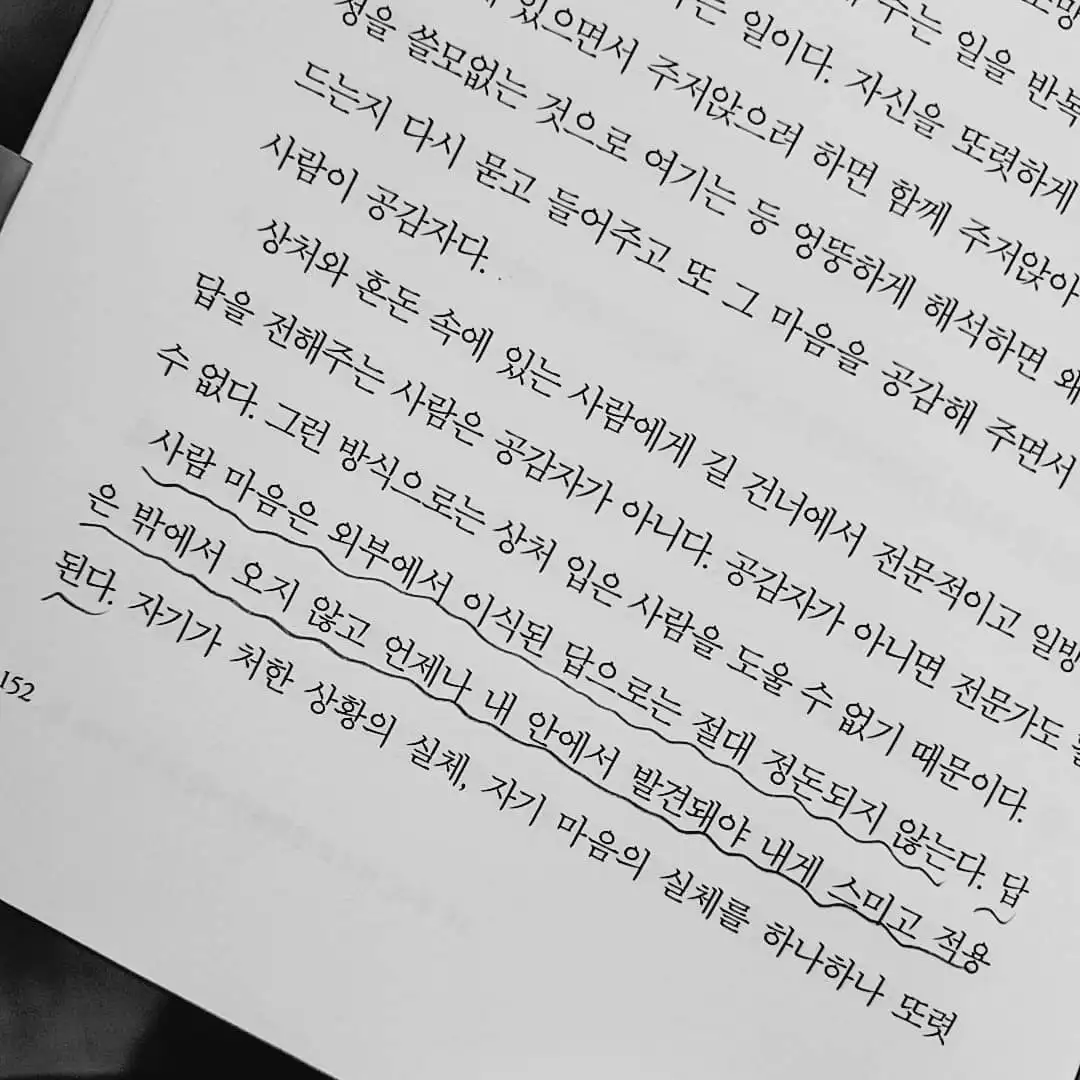 주는 일을 반복
일이다. 자신을 또렷하게
있으면서 주저앉으려 하면 함께 주저앉아
정을 쓸모없는 것으로 여기는 등 엉뚱하게 해석하면 왜
드는지 다시 묻고 들어주고 또 그 마음을 공감해 주면서
사람이 공감자다.
상처와 혼돈 속에 있는 사람에게 길 건너에서 전문적이고 일방
답을 전해주는 사람은 공감자가 아니다. 공감자가 아니면 전문가도
수 없다. 그런 방식으로는 상처 입은 사람을 도울 수 없기 때문이다.
사람 마음은 외부에서 이식된 답으로는 절대 정돈되지 않는다. 답
은 밖에서 오지 않고 언제나 내 안에서 발견돼야 내게 스미고 적용
된다. 자기가 처한 상황의 실체, 자기 마음의 실체를 하나하나 또렷
152